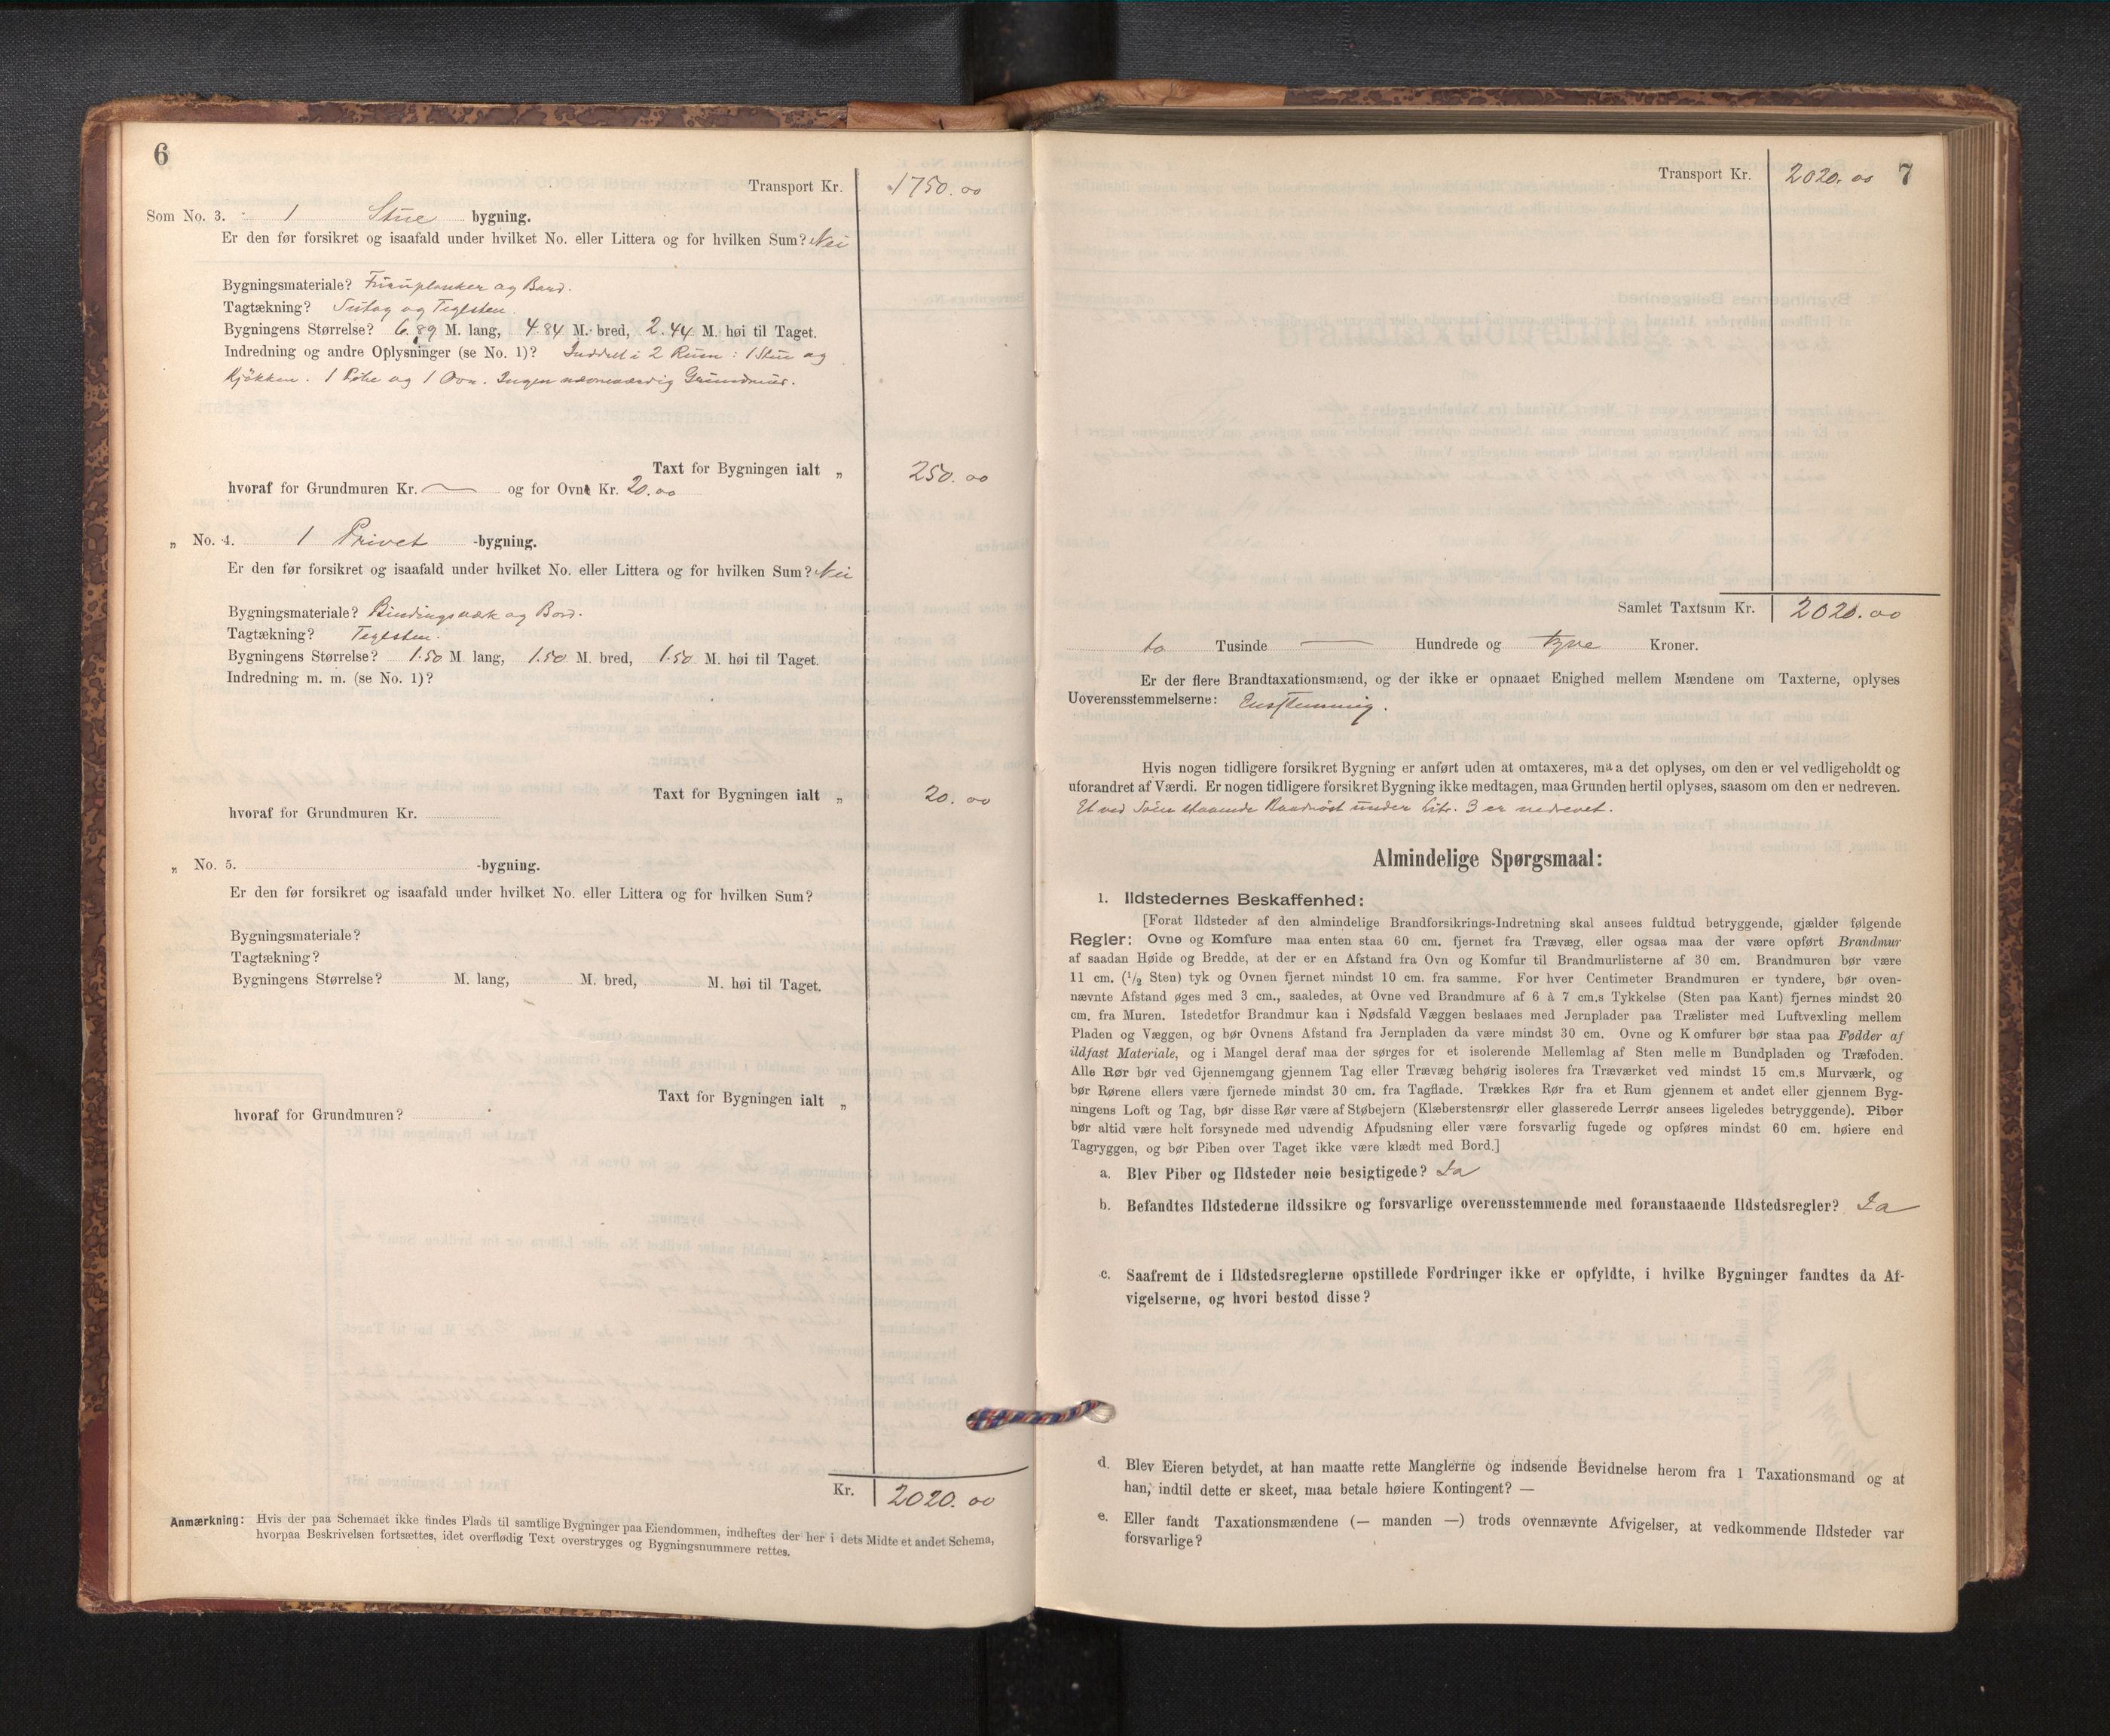 6
Transport Kr. 1750.00
Som No. 3. 1 Stue bygning.
Er den før forsikret og isaafald under hvilket No. eller Littera og for hvilken Sum? Nei
Bygningsmateriale? Furuplanker og Bord.
Tagtækning? og Teglsten.
Bygningens Størrelse? 6.89 M. lang, 4.84 M. bred, 2.44 M. høi til Taget.
Indredning og andre Oplysninger (se No. 1)? Inddelt i 2 Rum: 1 Stue og
Kjøkken. 1 Pibe og 1 Ovn. Ingen nævneværdig Grundmur.
Taxt for Bygningen ialt „ 250.00
hvoraf for Grundmuren Kr. — og for Ovne Kr. 20.00
„ No. 4. 1 Privet -bygning.
Er den før forsikret og isaafald under hvilket No. eller Littera og for hvilken Sum? Nei
Bygningsmateriale? Bindingsværk og Bord.
Tagtækning? Teglsten.
Bygningens Størrelse? 1.50 M. lang, 1.50 M. bred, 1.50 M. høi til Taget.
Indredning m. m. (se No. 1)?
Taxt for Bygningen ialt „ 20.00
hvoraf for Grundmuren Kr.
„ No. 5. -bygning.
Er den før forsikret og isaafald under hvilket No. eller Littera og for hvilken Sum?
Bygningsmateriale?
Tagtækning?
Bygningens Størrelse? M. lang, M. bred, M. høi til Taget.
Taxt for Bygningen ialt „
hvoraf for Grundmuren?
Kr. 2020.00
Anmærkning: Hvis der paa Schemaet ikke findes Plads til samtlige Bygninger paa Eiendommen, indheftes der her i dets Midte et andet Schema,
hvorpaa Beskrivelsen fortsættes, idet overflødig Text overstryges og Bygningsnummere rettes.
Transport Kr. 2020.00 7
Samlet Taxtsum Kr. 2020.00
to Tusinde — Hundrede og tyve Kroner.
Er der flere Brandtaxationsmænd, og der ikke er opnaaet Enighed mellem Mændene om Taxterne, oplyses
Uoverensstemmelserne: Enstemmig.
Hvis nogen tidligere forsikret Bygning er anført uden at omtaxeres, maa det oplyses, om den er vel vedligeholdt og
uforandret af Værdi. Er nogen tidligere forsikret Bygning ikke medtagen, maa Grunden hertil oplyses, saasom om den er nedreven.
Et ved Søen staaende under Litr. 3 er nedrevet.
Almindelige Spørgsmaal:
1. Ildstedernes Beskaffenhed:
[Forat Ildsteder af den almindelige Brandforsikrings-Indretning skal ansees fuldtud betryggende, gjælder følgende
Regler: Ovne og Komfure maa enten staa 60 cm. fjernet fra Trævæg, eller ogsaa maa der være opført Brandmur
af saadan Høide og Bredde, at der er en Afstand fra Ovn og Komfur til Brandmurlisterne af 30 cm. Brandmuren bør være
11 cm. (1/2 Sten) tyk og Ovnen fjernet mindst 10 cm. fra samme. For hver Centimeter Brandmuren er tyndere, bør oven-
nævnte Afstand øges med 3 cm., saaledes, at Ovne ved Brandmure af 6 à 7 cm.s Tykkelse (Sten paa Kant) fjernes mindst 20
cm. fra Muren. Istedetfor Brandmur kan i Nødsfald Væggen beslaaes med Jernplader paa Trælister med Luftvexling mellem
Pladen og Væggen, og bør Ovnens Afstand fra Jernpladen da være mindst 30 cm. Ovne og Komfurer bør staa paa Fødder af
ildfast Materiale, og i Mangel deraf maa der sørges for et isolerende Mellemlag af Sten mellem Bundpladen og Træfoden.
Alle Rør bør ved Gjennemgang gjennem Tag eller Trævæg behørig isoleres fra Træværket ved mindst 15 cm.s Murværk, og
bør Rørene ellers være fjernede mindst 30 cm. fra Tagflade. Trækkes Rør fra et Rum gjennem et andet eller gjennem Byg-
ningens Loft og Tag, bør disse Rør være af Støbejern (Klæberstensrør eller glasserede Lerrør ansees ligeledes betryggende). Piber
bør altid være helt forsynede med udvendig Afpudsning eller være forsvarlig fugede og opføres mindst 60 cm. høiere end
Tagryggen, og bør Piben over Taget ikke være klædt med Bord.]
a. Blev Piber og Ildsteder nøie besigtigede? Ja
b. Befandtes Ildstederne ildssikre og forsvarlige overensstemmende med foranstaaende Ildstedsregler? Ja
c. Saafremt de i Ildstedsreglerne opstillede Fordringer ikke er opfyldte, i hvilke Bygninger fandtes da Af-
vigelserne, og hvori bestod disse?
d. Blev Eieren betydet, at han maatte rette Manglerne og indsende Bevidnelse herom fra 1 Taxationsmand og at
han, indtil dette er skeet, maa betale høiere Kontingent? —
e. Eller fandt Taxationsmændene (— manden —) trods ovennævnte Afvigelser, at vedkommende Ildsteder var
forsvarlige?